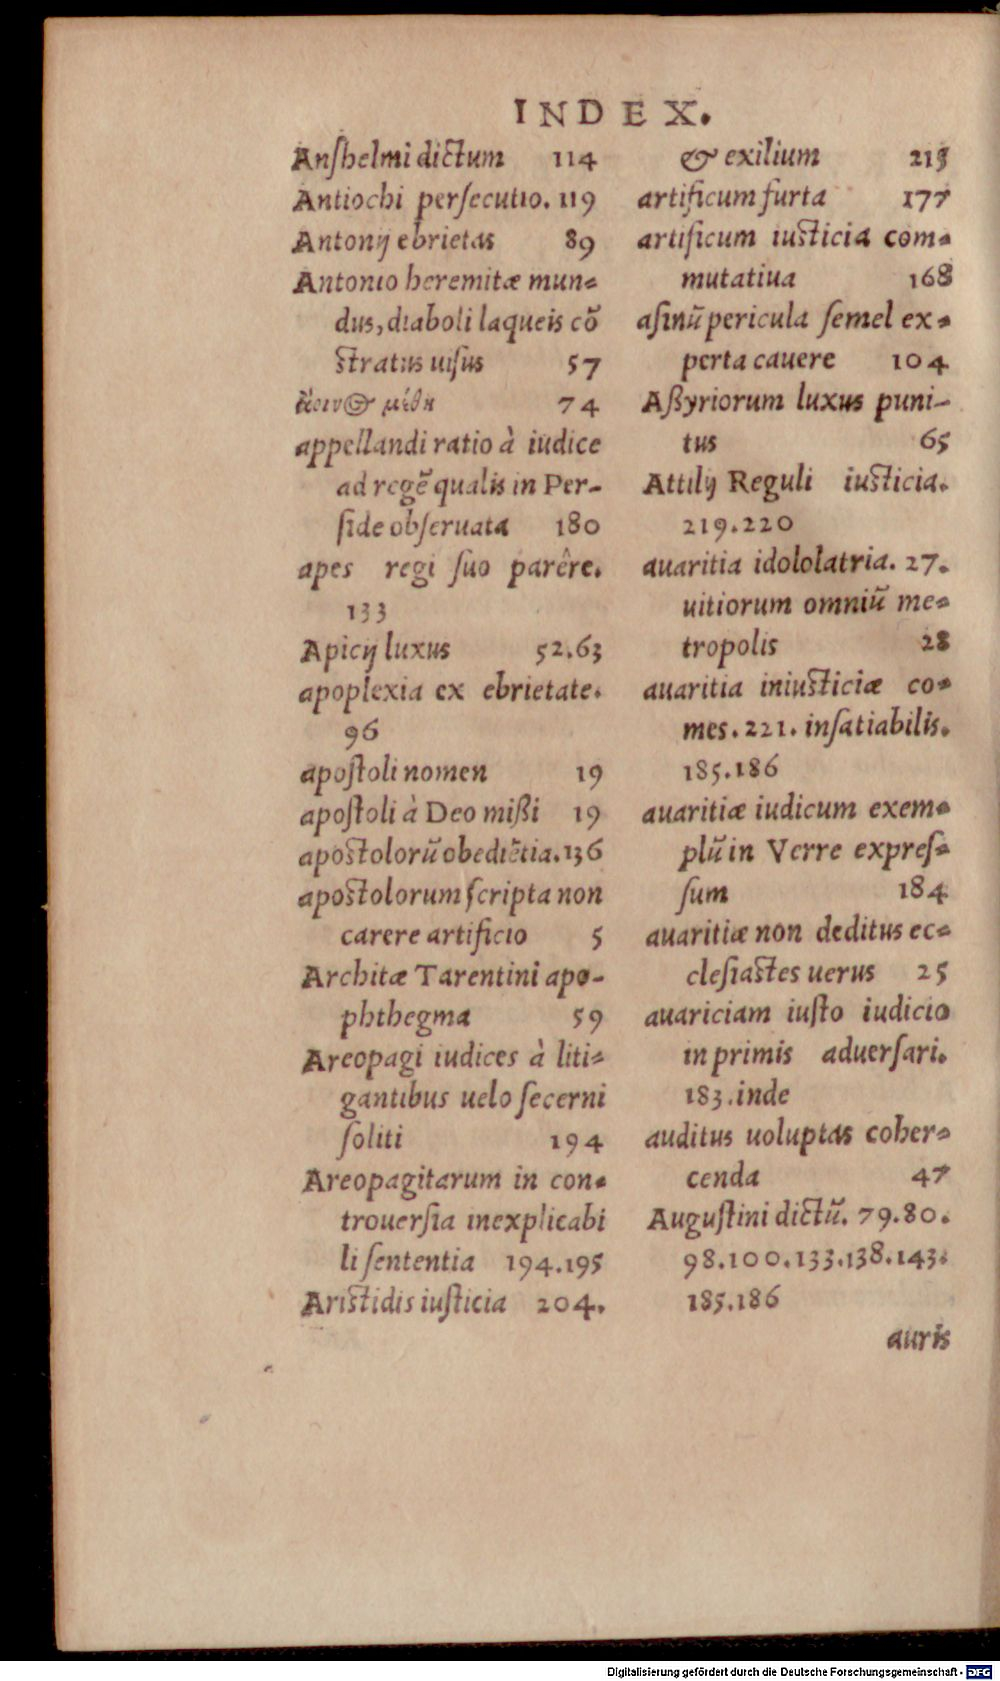 INDEX.
Anſhelmi dictum 114
Antiochi perſecutio. 119
Antonij ebrietas 89
Antonio heremitæ mun-
dus, diaboli laqueis cō
ſtratus uiſus 57
74
appellandi ratio à iudice
ad regē qualis in Per-
ſide obſeruata 180
apes regi ſuo parêre.
133
Apicij luxus 52.63
apoplexia ex ebrietate.
96
apoſtoli nomen 19
apoſtoli à Deo mißi 19
apoſtolorū obediētia. 136
apoſtolorum ſcripta non
carere artificio 5
Architæ Tarentini apo-
phthegma 59
Areopagi iudices à liti-
gantibus uelo ſecerni
ſoliti 194
Areopagitarum in con-
trouerſia inexplicabi
li ſententia 194.195
Ariſtidis iuſticia 204.
& exilium 215
artificum furta 177
artificum iuſticia com-
mutatiua 168
aſinū pericula ſemel ex-
perta cauere 104
Aßyriorum luxus puni-
tus 65
Attilij Reguli iuſticia.
219.220
auaritia idololatria. 27.
uitiorum omniū me-
tropolis 28
auaritia iniuſticiæ co-
mes. 221. inſatiabilis.
185.186
auaritiæ iudicum exem-
plū in Verre expreſ-
ſum 184
auaritiæ non deditus ec-
cleſiaſtes uerus 25
auariciam iuſto iudicio
in primis aduerſari.
183. inde
auditus uoluptas coher-
cenda 47
Auguſtini dictū. 79.80.
98.100.133.138.143.
185.186
auris
Digitalisierung gefördert durch die Deutsche Forschungsgemeinschaft - DFG